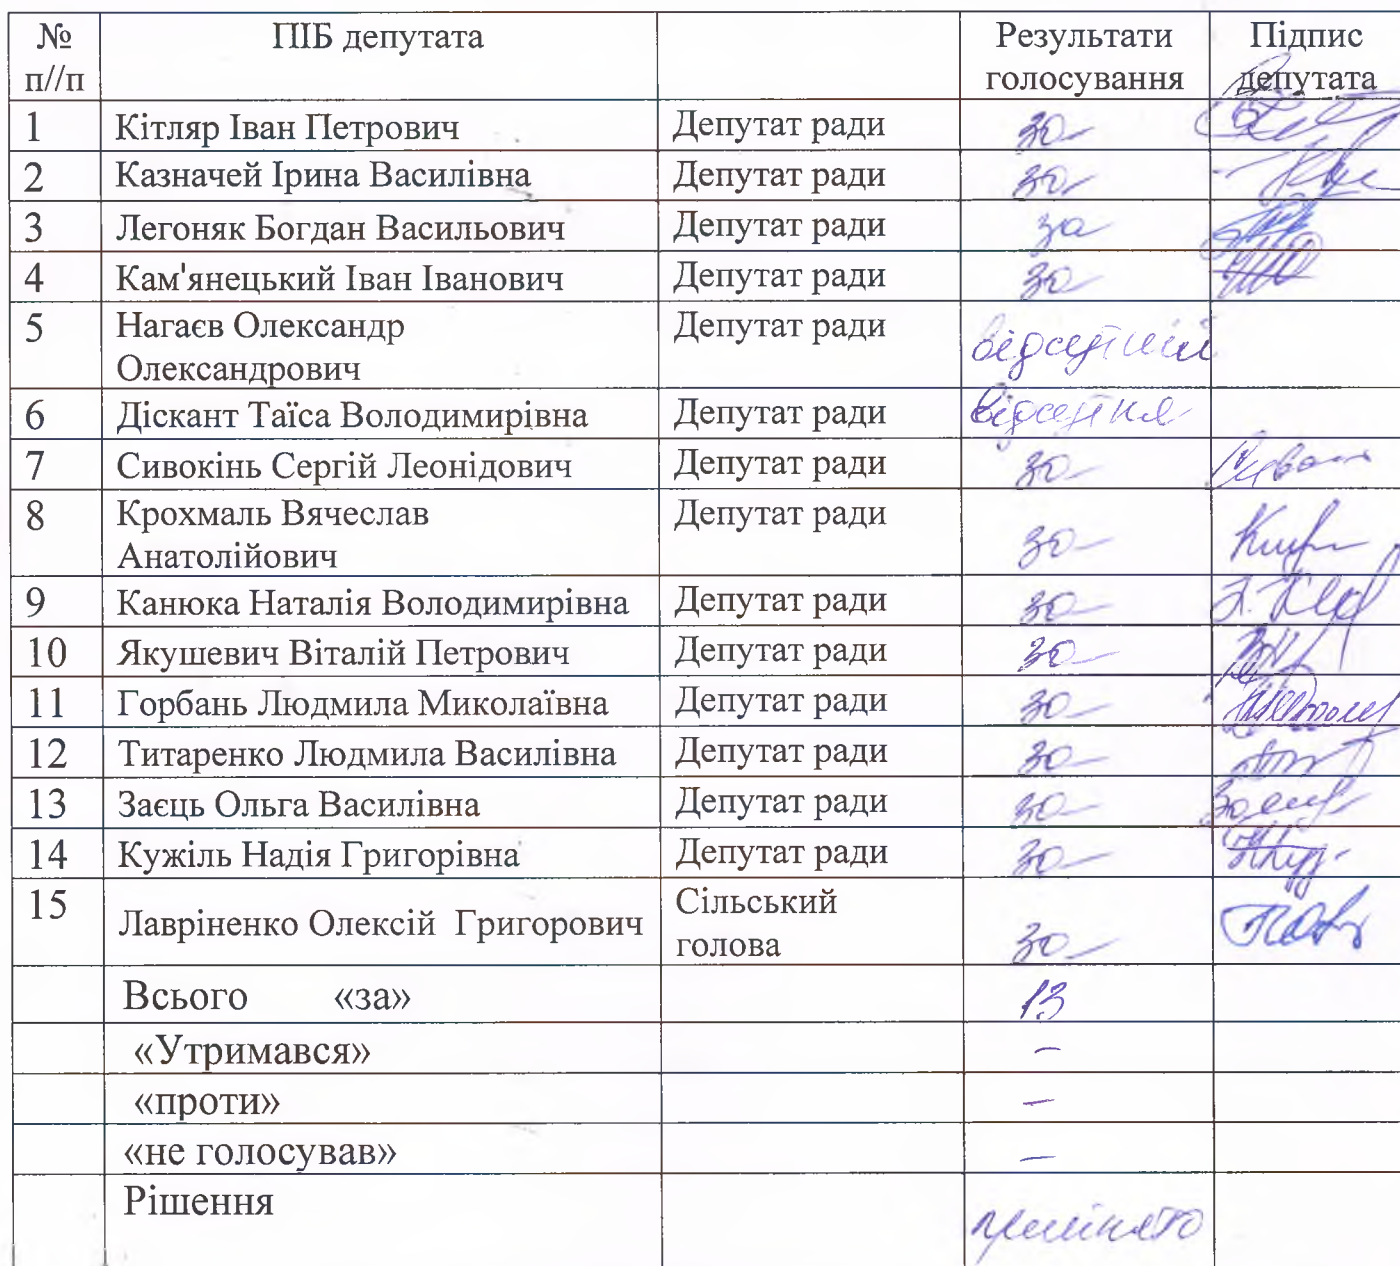 № п//п ПІБ депутата Результати голосування Підпис депутата
1 Кітляр Іван Петрович Депутат ради за
2 Казначей Ірина Василівна Депутат ради за
3 Легоняк Богдан Васильович Депутат ради за
4 Кам'янецький Іван Іванович Депутат ради за
5 Нагаєв Олександр Олександрович Депутат ради відсутній
6 Діскант Таїса Володимирівна Депутат ради відсутня
7 Сивокінь Сергій Леонідович Депутат ради за
8 Крохмаль Вячеслав Анатолійович Депутат ради за
9 Канюка Наталія Володимирівна Депутат ради за
10 Якушевич Віталій Петрович Депутат ради за
11 Горбань Людмила Миколаївна Депутат ради за
12 Титаренко Людмила Василівна Депутат ради за
13 Заєць Ольга Василівна Депутат ради за
14 Кужіль Надія Григорівна Депутат ради за
15 Лавріненко Олексій Григорович Сільський голова за
Всього «за» 13
«Утримався» –
«проти» –
«не голосував» –
Рішення прийнято